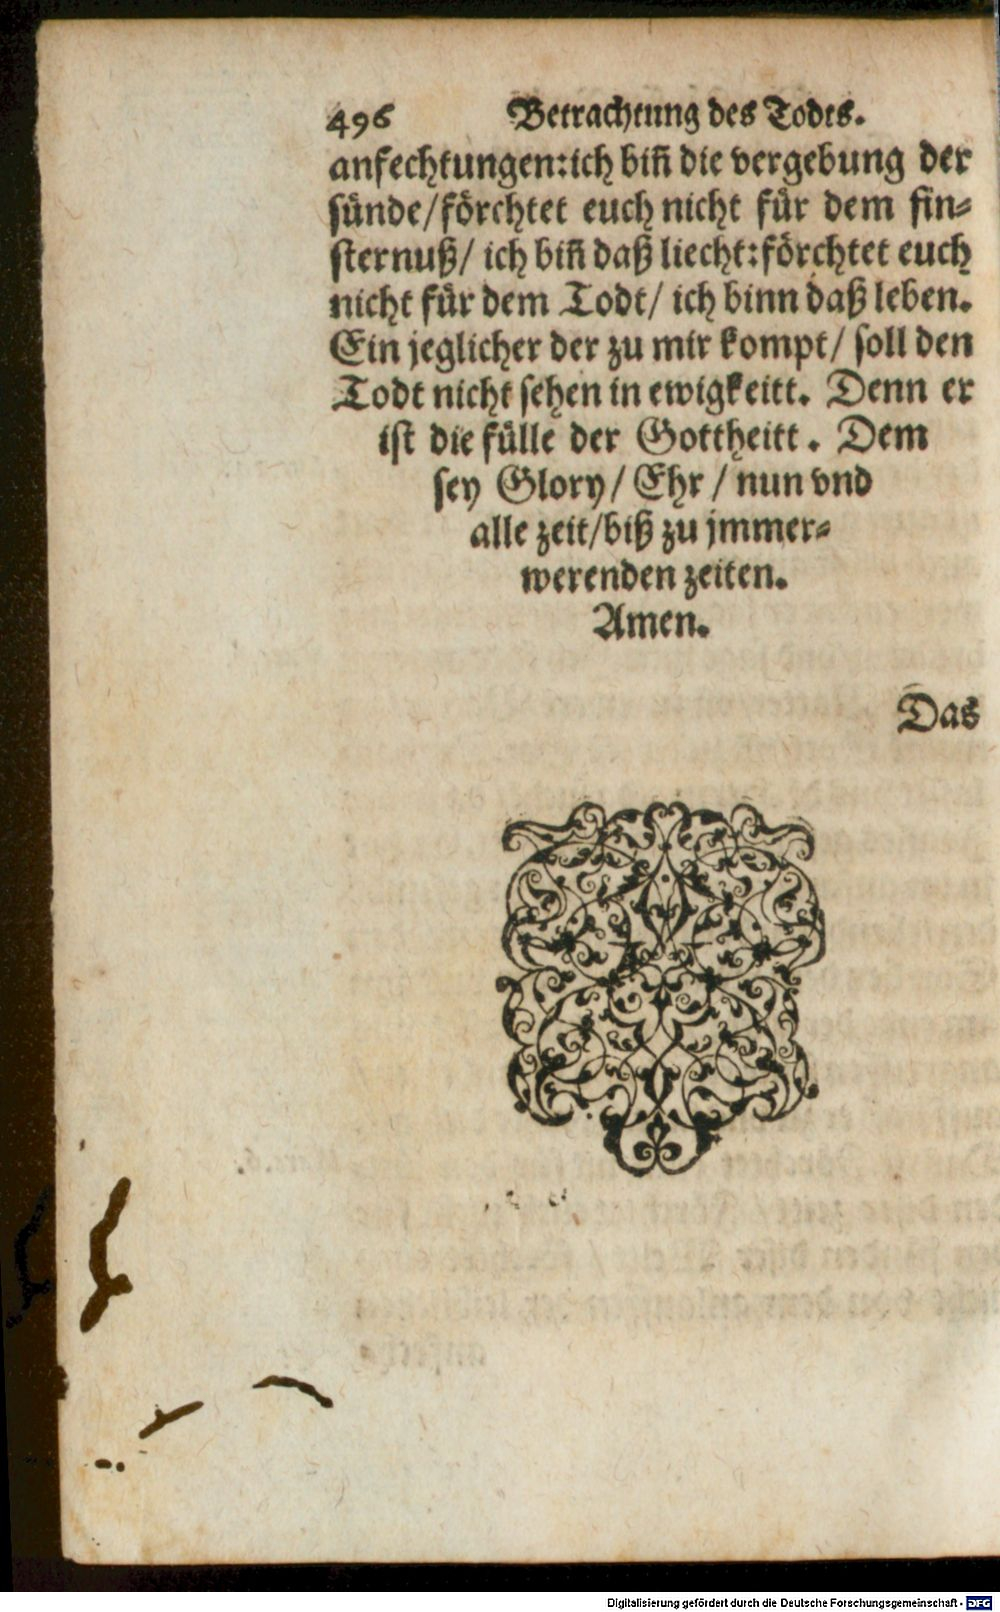 496 Betrachtung des Todts.
anfechtungen:ich biñ die vergebung der
sünde/förchtet euch nicht für dem fin⸗
sternuß/ ich biñ daß liecht:förchtet euch
nicht für dem Todt/ ich binn daß leben.
Ein jeglicher der zu mir kompt/ soll den
Todt nicht sehen in ewigkeitt. Denn er
ist die fülle der Gottheitt. Dem
sey Glory/ Ehr / nun vnd
alle zeit/biß zu jmmer⸗
werenden zeiten.
Amen.
Das
Digitalisierung gefördert durch die Deutsche Forschungsgemeinschaft - DFG